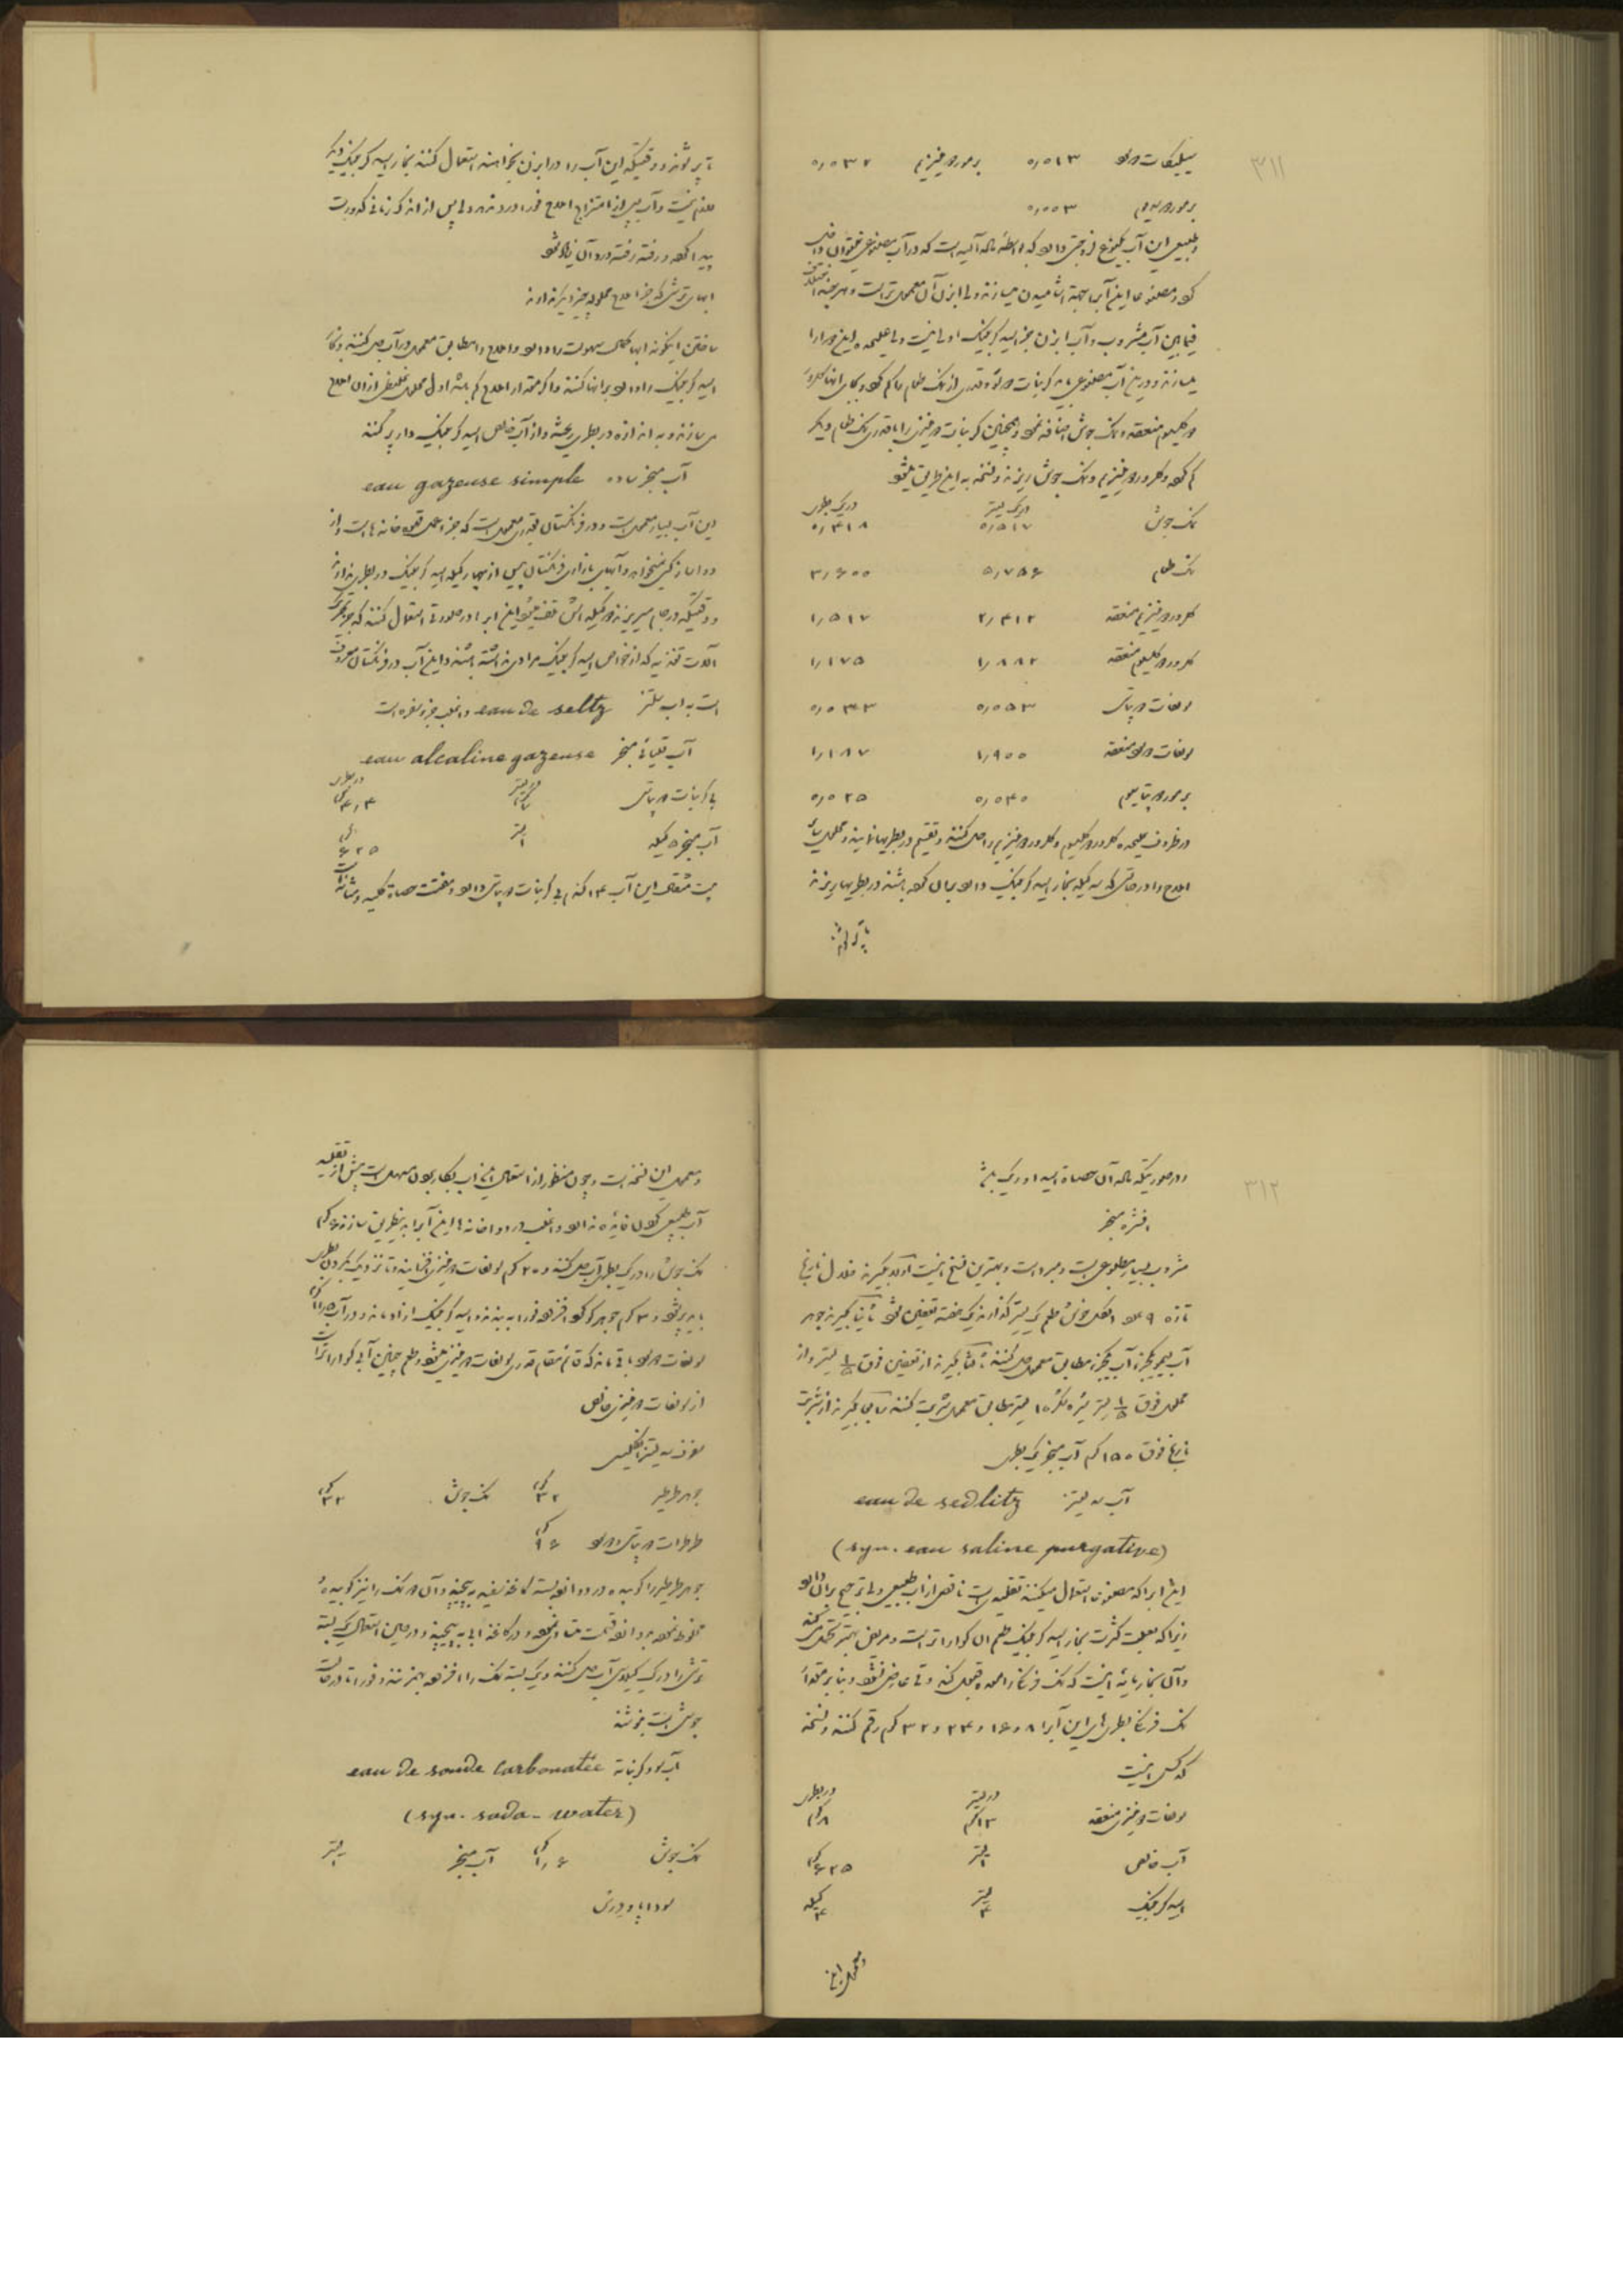 ۳۱۱
سیلیکات دو سود ۰٫۵۱۳ برمور دو منیزیم ۰٫۰۳۲
برمور دو سدیم ۰٫۰۰۳
طبیعی این آب یکنوع لزوجتی دارد که بواسطه ماده آلیه است که در آب مصنوعی نمیتوان داخل
کرد و مصنوعا این آب را بجهة آشامیدن میسازند ولی ابزن آن معمولتر است و هر چند اختلاف
فیمابین آب مشروب و آب ابزن جز اسید کربنیک اولی نیست ولی علیحده این دو را
میسازند و در این آب مصنوعی باید کربنات دو سود و قدری از نمک طعام را کم کرد و بجای آنها کلرور
دو کلسیوم منعقد و نمک جوش اضافه نمود و همچنین کربنات دو منیزی را با قدری نمک طعام دیگر
کم کرد و کلرور دو منیزیم و نمک جوش ریزند و نسخه به این طریق میشود
در یک لیتر در یک بطری
نمک جوش ۰٫۵۱۷ ۰٫۴۱۸
نمک طعام ۵٫۷۵۶ ۳٫۶۰۰
کلرور دو منیزیم منعقد ۲٫۴۱۲ ۱٫۵۱۷
کلرور دو کلسیوم منعقد ۱٫۸۸۲ ۱٫۱۷۵
سولفات دو پتاس ۰٫۰۵۳ ۰٫۰۳۳
سولفات دو سود منعقد ۱٫۹۰۰ ۱٫۱۸۷
برمور دو پتاسیم ۰٫۰۴۰ ۰٫۰۲۵
در ظروف علیحده کلرور دو کلسیوم و کلرور دو منیزیم را حل کنند و تقسیم در بطریها نمایند و محلول سایر
املاح را در حالتی که سه کیله بخار اسید کربنیک دارد بر آن کرده باشند در بطریها ریزند
تا پر شوند
تا پر شوند و وقتیکه این آب را در ابزن بخواهند استعمال کنند بخار اسید کربنیک دیگر
لازم نیست و آب پس از امتزاج املاح فورا درد ندارد ولی پس از اندک زمانی کدورت
پیدا کرده و رفته رفته درد آن زیاد شود
آبهای ترشی که جز املاح محلوله چیز دیگر ندارند
ساختن اینگونه آبها کمال سهولت را دارد و املاح را مطابق معمول در آب حل کنند و بخار
اسید کربنیک را وارد بر آنها کنند و اگر مقدار املاح کم باشد اول محلول غلیظی از آن املاح
می سازند و به اندازه در بطری ریخته و از آب خالص اسید کربنیک دار پر کنند
آب مبخر ساده eau gazeuse simple
این آب بسیار معمول است و در فرنگستان بقدری معمول است که جزء اعمال قهوه خانه ها است و از
دواساز کسی نمیخواهد و آبهای بازاری فرنگستان بیش از چهار کیله اسید کربنیک در بطری ندارد
و وقتیکه در جام میریزند دو کیله اش تلف میشود این آب را در صورتی استعمال کنند که جز تحریک
آلات تغذیه که از خواص اسید کربنیک مرادی نداشته باشند و این آب در فرنگستان معروف
است به آب سلتز eau de seltz و اغلب جزء سفره است
آب قلیائی مبخر eau alcaline gazeuse
در لیتر در بطری
بی کربنات دو پتاس ۷ گرم ۴٫۴ گرم
آب مبخر ۵ کیله ۱ لیتر ۶۲۵ گرم
بیست مثقال این آب ۱۴ گندم بی کربنات دو پتاس دارد و منفتت حصاة کلیه و مثانه است
۳۱۲
در صورتیکه ماده آن حصاة اسید اوریک باشد
افشره مبخر
مشروب بسیار مطلوبی است و مبرد است و بهترین نسخ اینست اولا بگیرند خلال نارنج
تازه ۹ عدد الکل خوش طعم یک لیتر گذارند یک هفته تعفین شود ثانیا بگیرند جوهر
آب لیمو یکجزء آب یکجزء مطابق معمول حل کنند ثالثا بگیرند از تعفین فوق ۱/۵ لیتر و از
محلول فوق ۱/۵ لیتر شیره شکر ۱۰ لیتر مطابق معمول شربت کنند رابعا بگیرند از شربت
نارنج فوق ۱۵۰ گرم آب مبخر یک بطری
آب سدلیتز eau de sedlitz
(syn. eau saline purgative)
این آب را که مصنوعی استعمال میکنند تقلیدی است ناقص از آب طبیعی ولی ترجیح بر آن دارد
زیرا که بعلت کثرت بخار اسید کربنیک طعم آن گواراتر است و مریض بهتر تحمل می کند
و آن بخار مایه اینست که نمک فرنگی را معده قبول کند و قی عارض نشود و بنابر مقدار
نمک فرنگی بطری های این آب را ۸ و ۱۶ و ۲۴ و ۳۲ گرم رقم کنند و نسخه
کدکس اینست
در لیتر در بطری
سولفات دو منیزی منعقد ۱۳ گرم ۸ گرم
آب خالص ۱ لیتر ۶۲۵ گرم
اسید کربنیک ۴ لیتر ۴ کیله
و معمول این
و معمول این نسخه است و چون منظور از استعمال این آب بکار بودن مسهل است پیش از تقلید
آب طبیعی کردن فایده ندارد و اغلب در دواخانه ها این آب را به این طریق سازند ۶ گرم
نمک جوش را در یک بطری آب حل کنند و ۳۰ گرم سولفات دو منیزی افزایند و تا نزدیک گردن بطری
باید پر شود و ۴ گرم جوهر گوگرد افزوده فورا به بندند و اسید کربنیک آزاد ماند و در آب
سولفات دو سود باقی ماند که قائم مقام قدری سولفات دو منیزی میشود و طعم چنین آبی گواراتر است
از سولفات دو منیزی خالص
سفوف سدلیتز انگلیسی
جوهر طرطیر ۳۲ گرم نمک جوش ۳۲ گرم
طرطرات دو پتاس و دو سود ۹۶ گرم
جوهر طرطیر را کوبیده در دوازده بسته کاغذ سفید به پیچند و آن دو نمک را نیز کوبیده
مخلوط نموده به دوازده قسمت متساوی نموده و در کاغذ آبی به پیچند و در حین استعمال یک بسته
ترشی را در یک گیلاس آب حل کنند و یک بسته نمک را افزوده بهم زنند و فورا تا در حالت
جوش است بنوشند
آب سود کربناته eau de soude carbonatée
(syn. soda-water)
نمک جوش ۱٫۶ گرم آب مبخر ۱ لیتر
سودا پاودرس